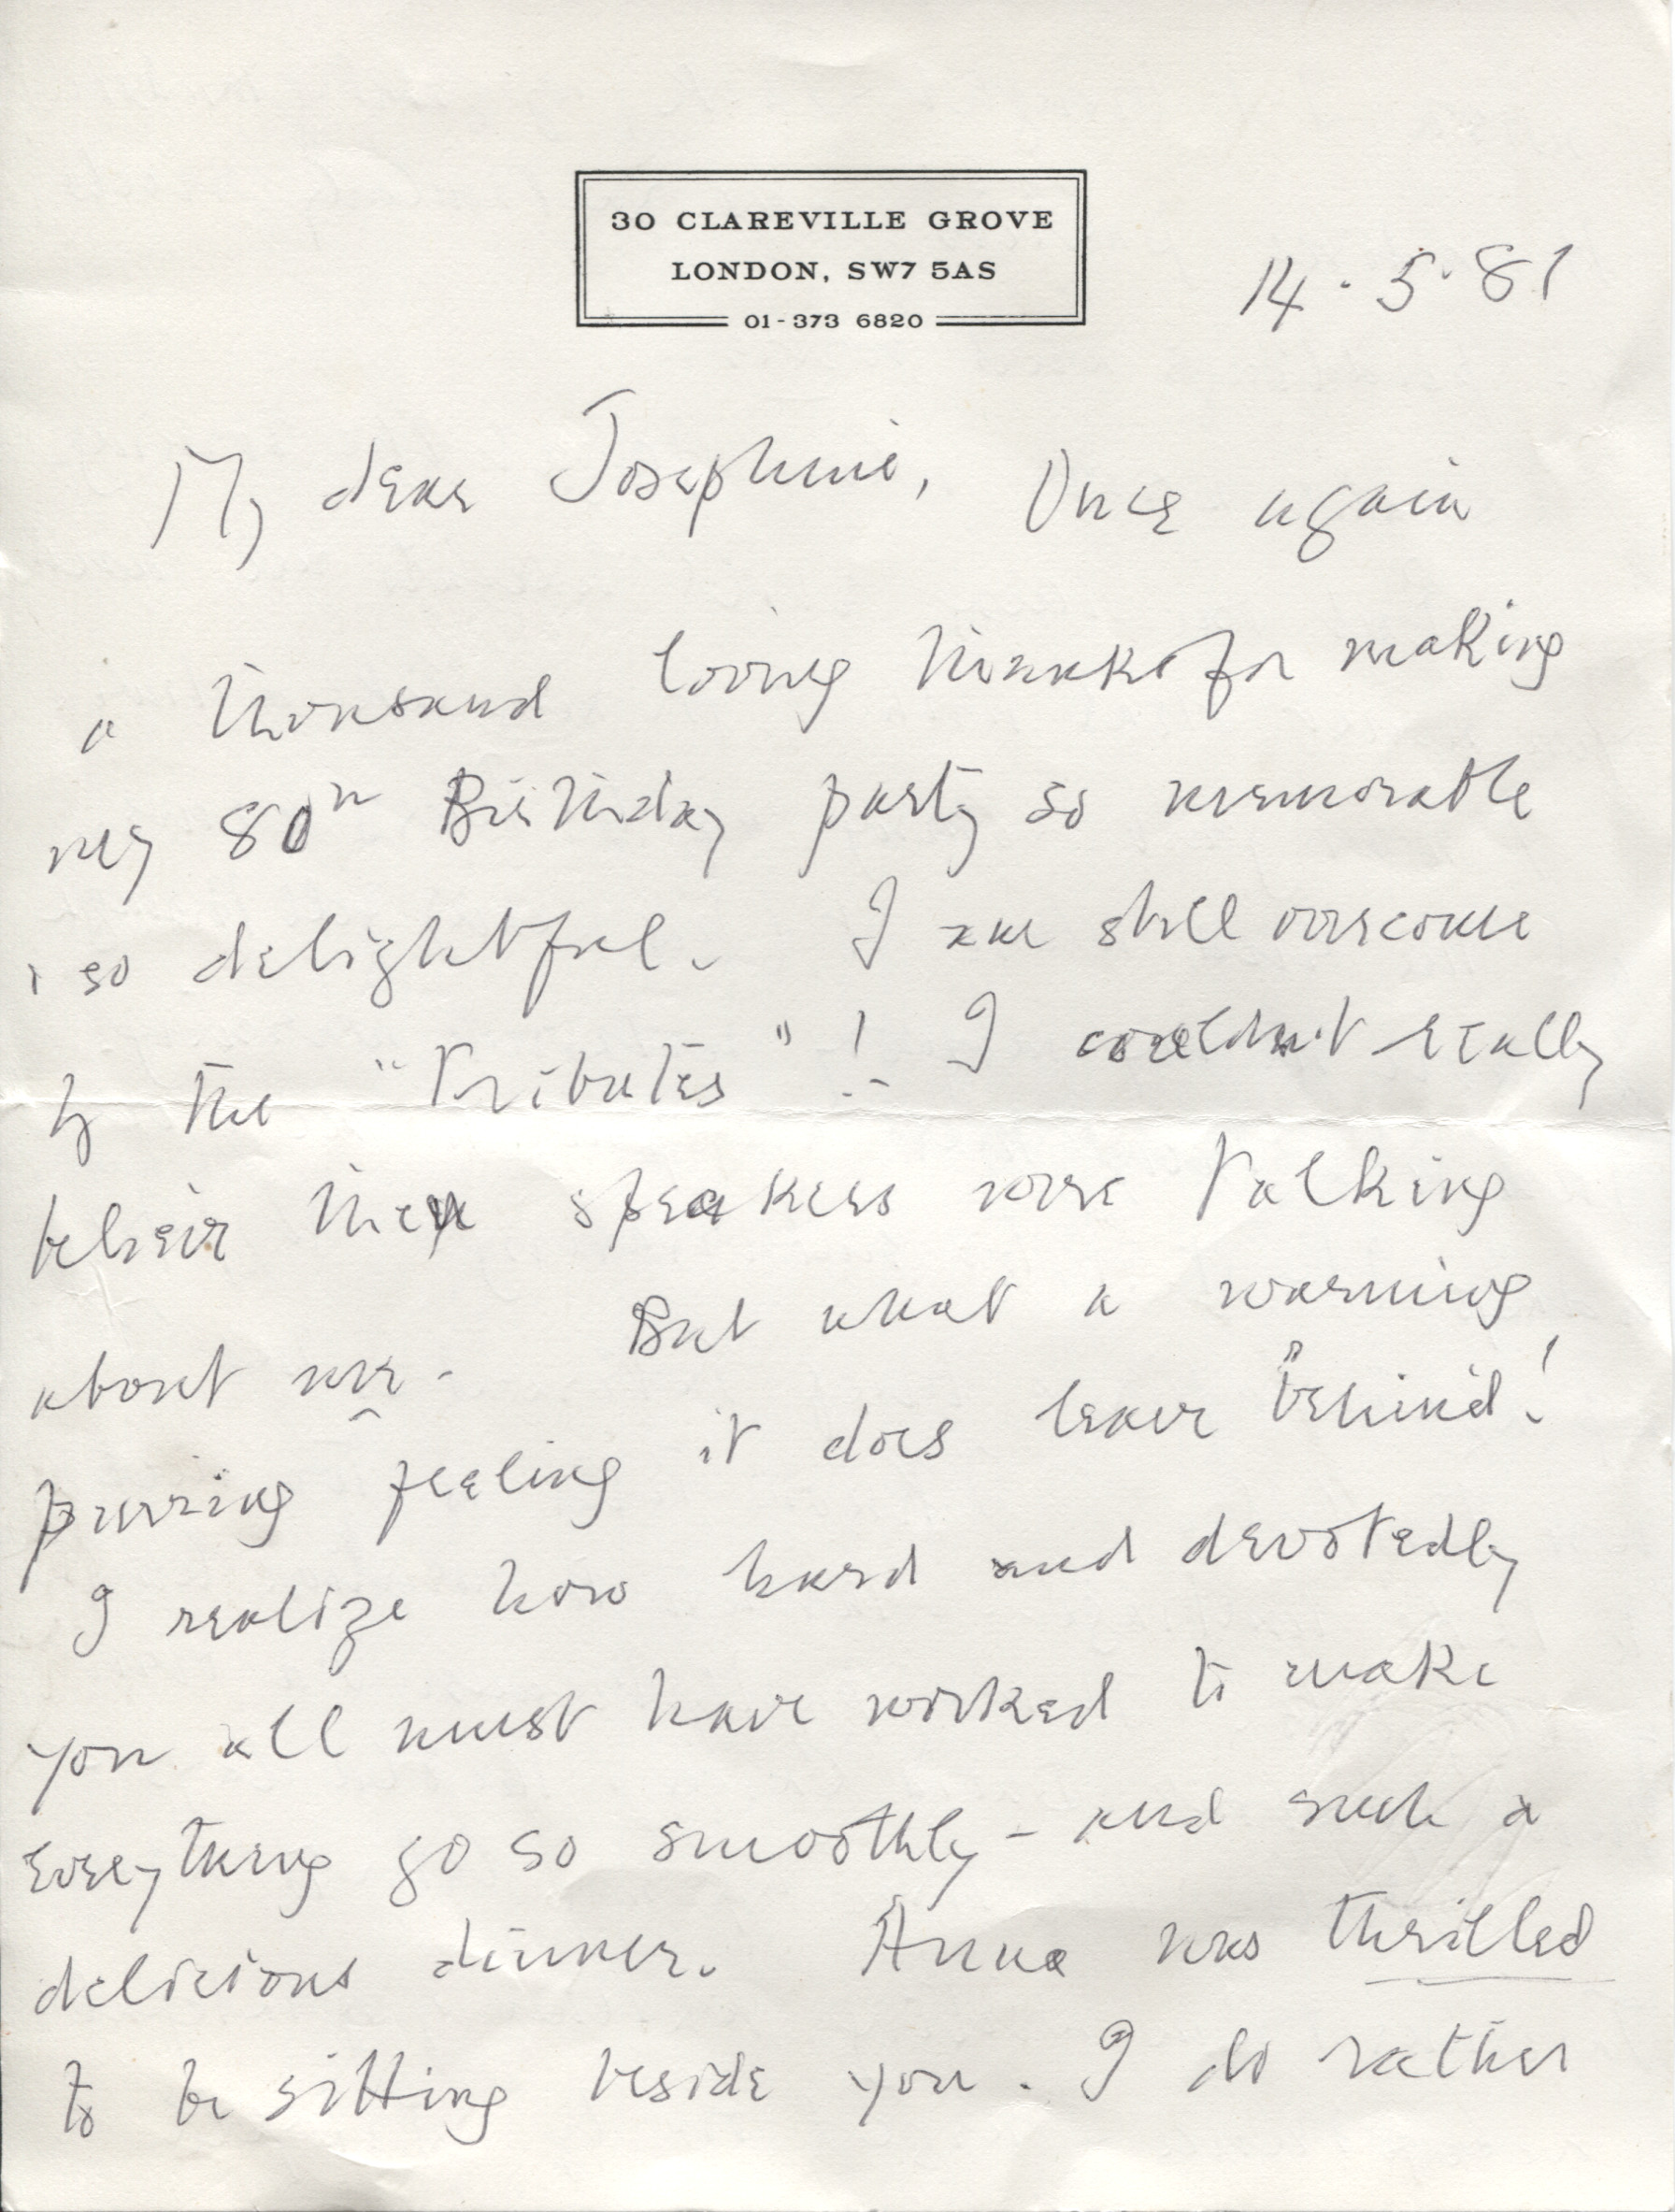 30 CLAREVILLE GROVE
LONDON, SW7 5AS
01-373 6820
14.5.81
My dear Josephine, Once again
a thousand loving thanks for making
my 80th Birthday party so memorable
& so delightful. I am still overcome
by the "Tributes"! I couldn't really
believe the speakers were talking
about me. But what a warming
purring feeling it does leave behind!
I realize how hard and devotedly
you all must have worked to make
everything go so smoothly - and such a
delicious dinner. Anna was thrilled
to be sitting beside you. I do rather